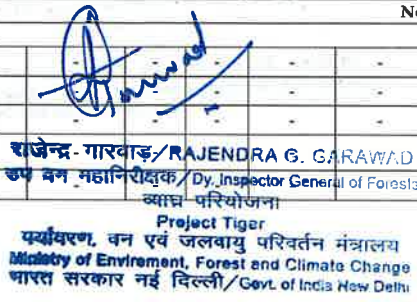 No
- - - - -
Garawad
- - - - -
- - - - -
राजेन्द्र गारवाड़/RAJENDRA G. GARAWAD
उप वन महानिरीक्षक/Dy. Inspector General of Forests
व्याघ्र परियोजना
Project Tiger
पर्यावरण, वन एवं जलवायु परिवर्तन मंत्रालय
Ministry of Enviroment, Forest and Climate Change
भारत सरकार नई दिल्ली/Govt. of India New Delhi